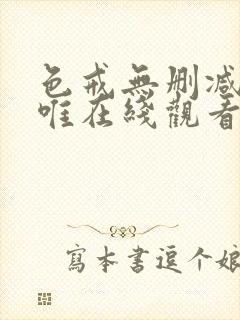 色戒無删减
唯在綫觀看
寫本書逗个娘